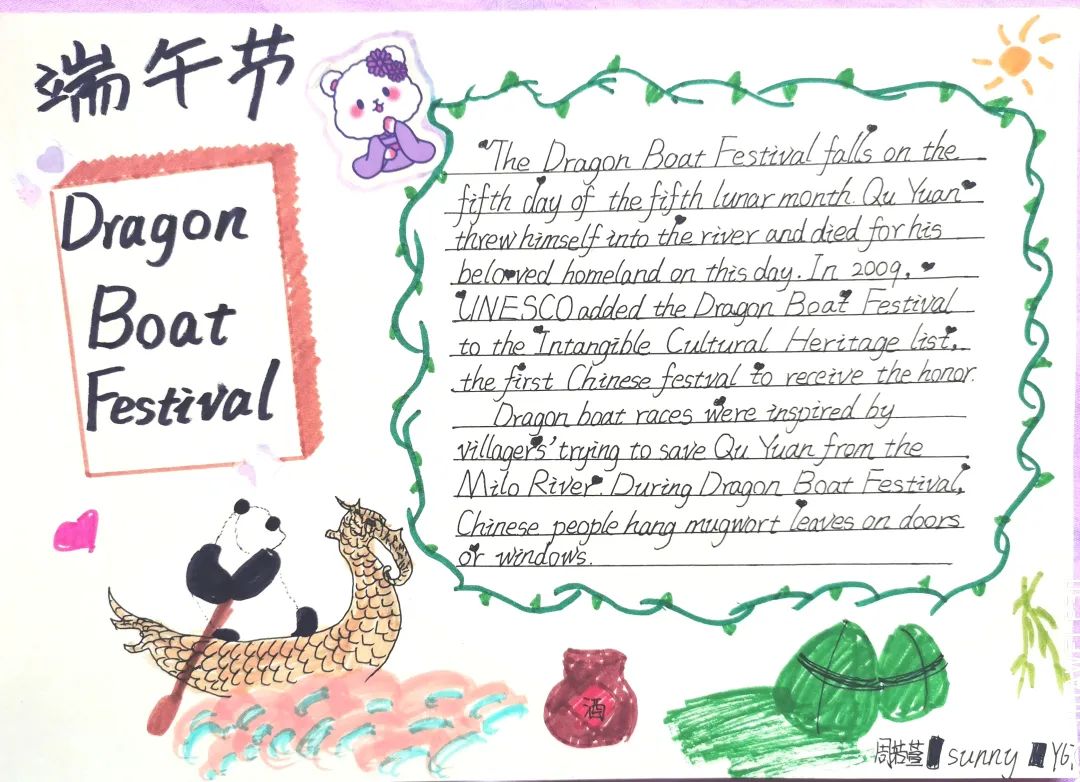 端午节
Dragon
Boat
Festival
"The Dragon Boat Festival falls on the
fifth day of the fifth lunar month. Qu Yuan
threw himself into the river and died for his
beloved homeland on this day. In 2009,
UNESCO added the Dragon Boat Festival
to the Intangible Cultural Heritage list,
the first Chinese festval to receive the honor.
Dragon boat races were inspired by
villagers' trying to save Qu Yuan from the
Milo River. During Dragon Boat Festival,
Chinese people hang mugwort leaves on doors
or windows.
酒
sunny